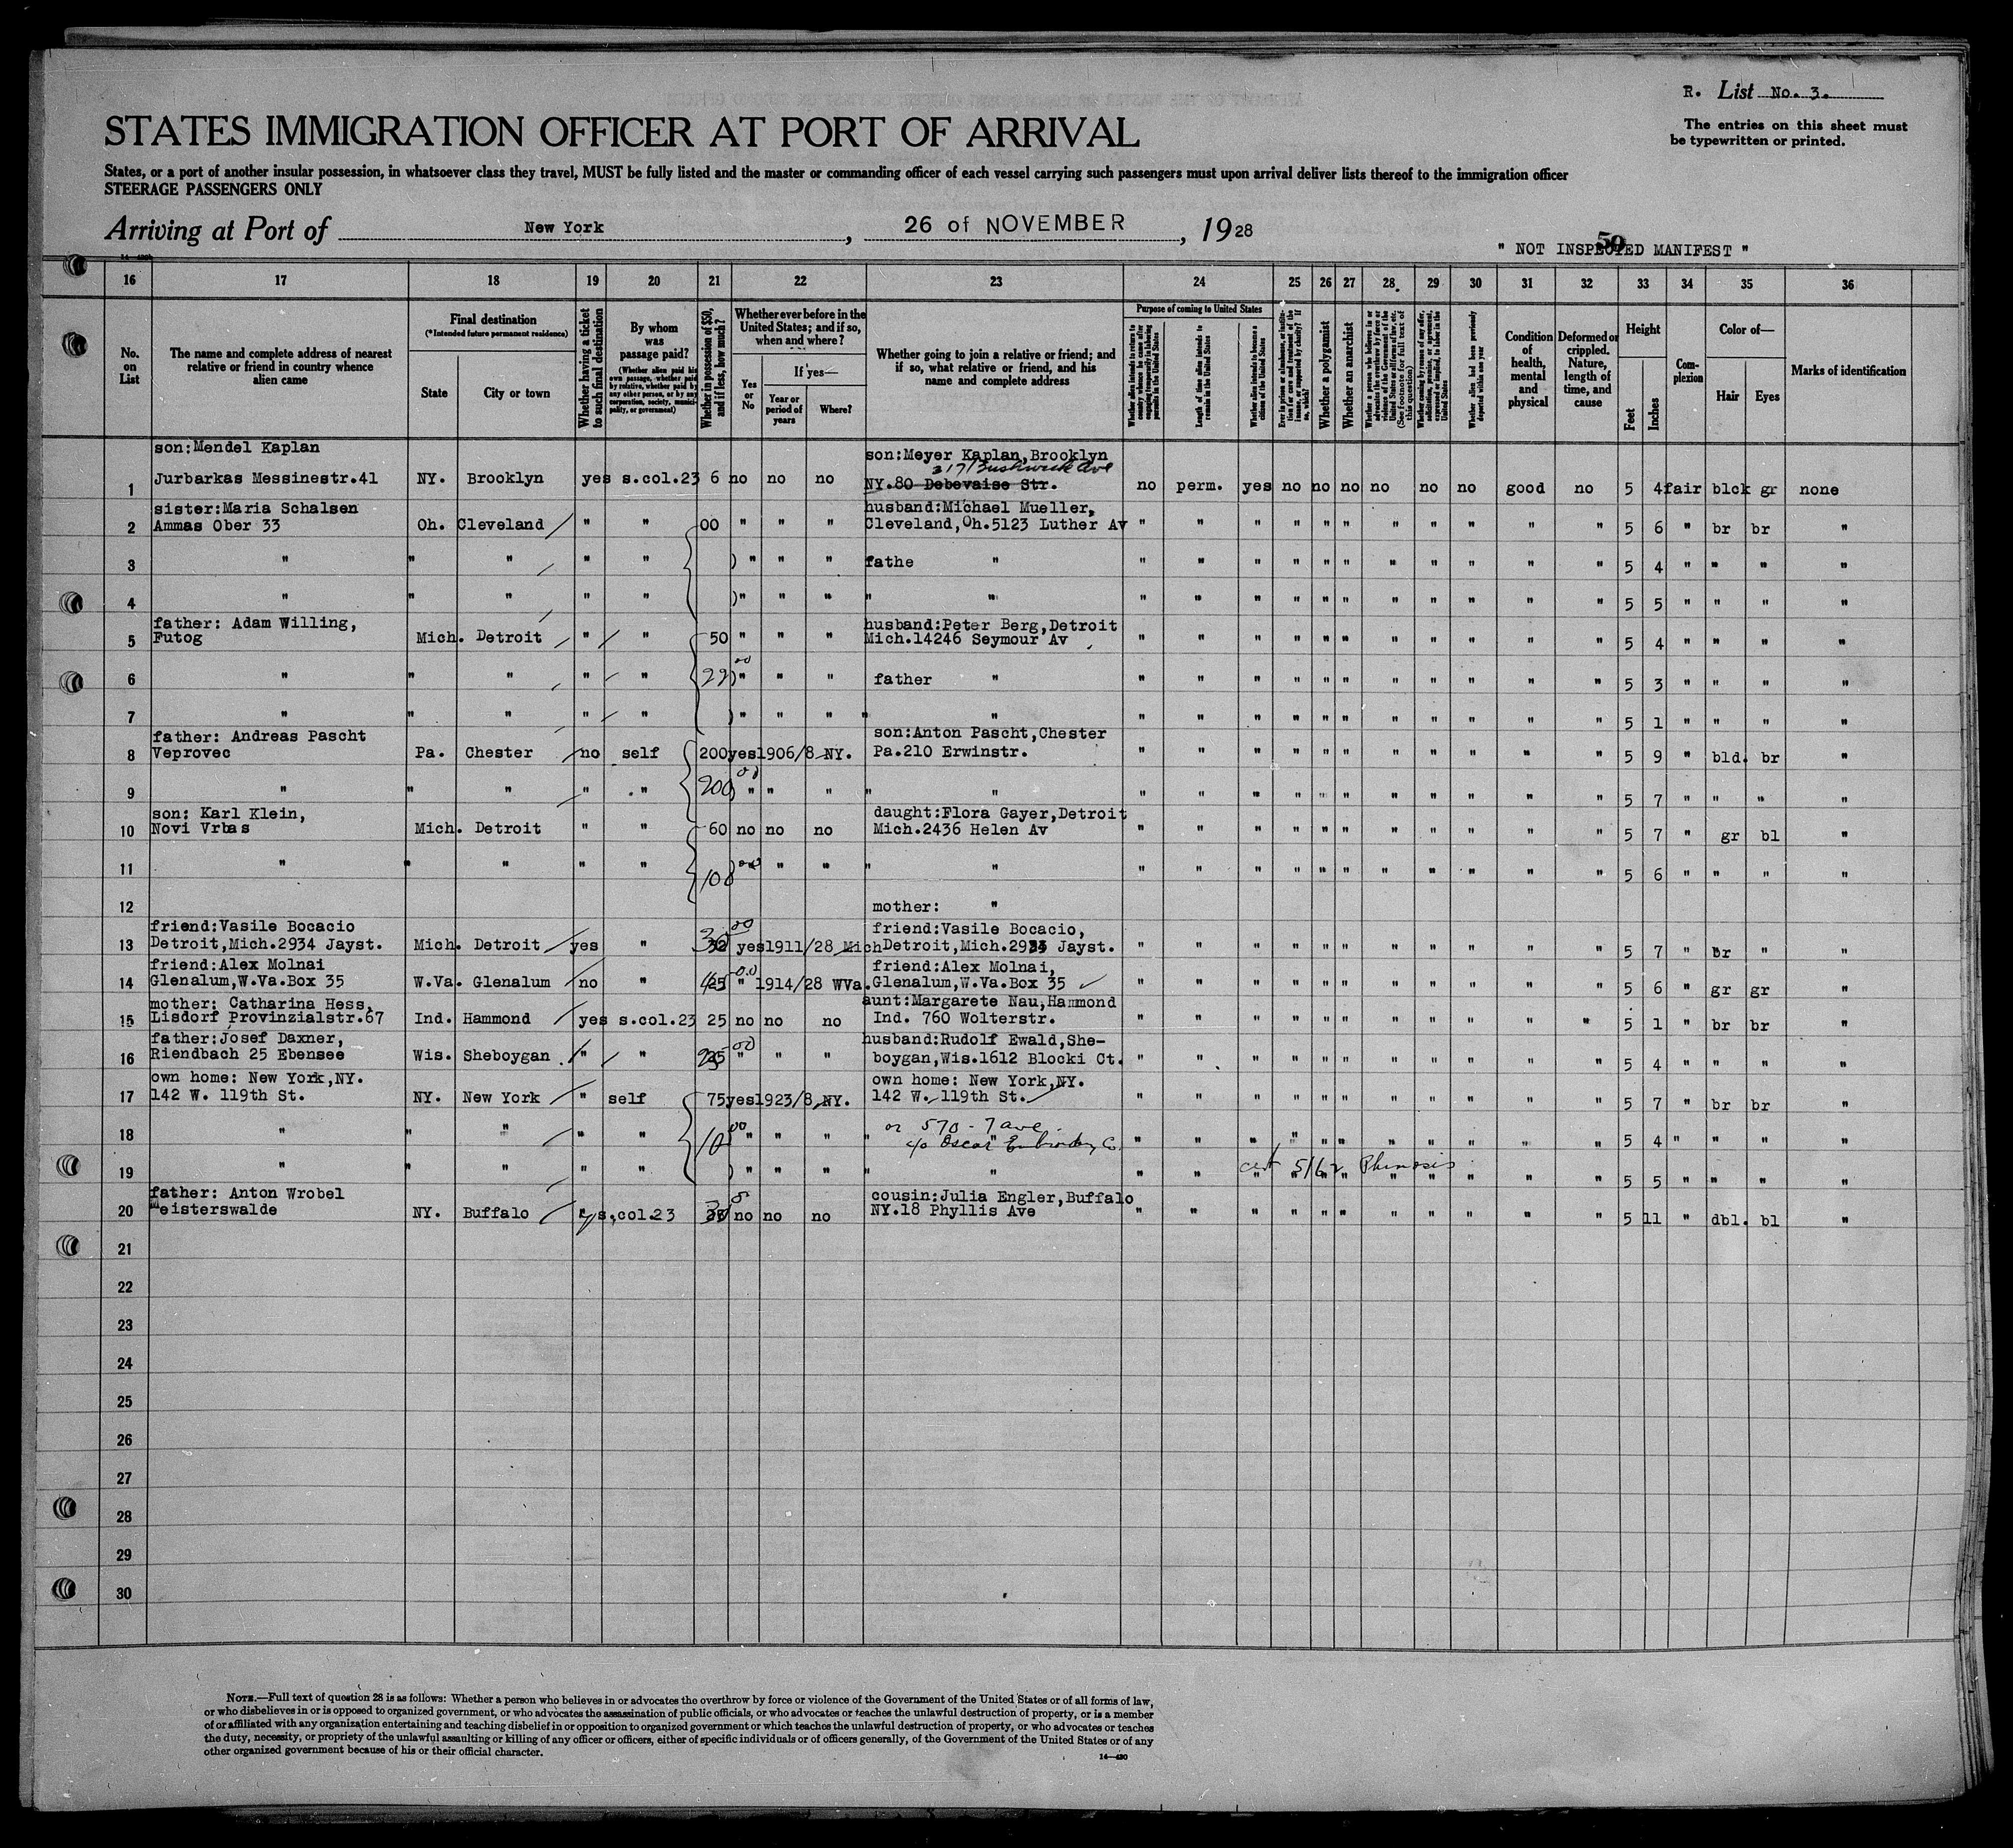 R. List No. 3.
The entries on this sheet must
be typewritten or printed.
STATES IMMIGRATION OFFICER AT PORT OF ARRIVAL
States, or a port of another insular possession, in whatsoever class they travel, MUST be fully listed and the master or commanding officer of each vessel carrying such passengers must upon arrival deliver lists thereof to the immigration officer
STEERAGE PASSENGERS ONLY
Arriving at Port of New York, 26 of NOVEMBER, 1928
50
" NOT INSPECTED MANIFEST "
16 17 18 19 20 21 22 23 24 25 26 27 28 29 30 31 32 33 34 35 36
No. on List
The name and complete address of nearest relative or friend in country whence alien came
Final destination
(*Intended future permanent residence)
State
City or town
Whether having a ticket to such final destination
By whom was passage paid?
(Whether alien paid his own passage, whether paid by relative, whether paid by any other person, or by any corporation, society, municipality, or government)
Whether in possession of $50, and if less, how much?
Whether ever before in the United States; and if so, when and where?
Yes or No
If yes—
Year or period of years
Where?
Whether going to join a relative or friend; and if so, what relative or friend, and his name and complete address
Purpose of coming to United States
Length of time alien intends to remain in the United States
Whether alien intends to become a citizen of the United States
Whether a polygamist
Whether an anarchist
Condition of health, mental and physical
Deformed or crippled. Nature, length of time, and cause
Height
Feet
Inches
Complexion
Color of—
Hair
Eyes
Marks of identification
son:Mendel Kaplan son:Meyer Kaplan,Brooklyn
317 Bushwick Ave
1 Jurbarkas Messinestr.41 NY. Brooklyn yes s.col.23 6 no no no NY.80 Debevaise Str. no perm. yes no no no no no no good no 5 4 fair blck gr none
sister:Maria Schalsen husband:Michael Mueller,
2 Ammas Ober 33 Oh. Cleveland " " 00 " " " Cleveland,Oh.5123 Luther Av " " " " " " " " " " " 5 6 " br br "
3 " " " " " " " " fathe " " " " " " " " " " " " 5 4 " " " "
4 " " " " " " " " " " " " " " " " " " " " " 5 5 " " " "
father: Adam Willing, husband:Peter Berg,Detroit
5 Futog Mich. Detroit " " 50 " " " Mich.14246 Seymour Av " " " " " " " " " " " 5 4 " " " "
6 " " " " " " " " father " " " " " " " " " " " " 5 3 " " " "
7 " " " " " " " " " " " " " " " " " " " " " 5 1 " " " "
father: Andreas Pascht son:Anton Pascht,Chester
8 Veprovec Pa. Chester no self 200 yes 1906/8 NY. Pa.210 Erwinstr. " " " " " " " " " " " 5 9 " bld. br "
9 " " " " " 200 " " " " " " " " " " " " " " " " 5 7 " " " "
son: Karl Klein, daught:Flora Gayer,Detroit
10 Novi Vrbas Mich. Detroit " " 60 no no no Mich.2436 Helen Av " " " " " " " " " " " 5 7 " gr bl "
11 " " " " " 100 " " " " " " " " " " " " " " " 5 6 " " " "
12 mother: "
friend:Vasile Bocacio friend:Vasile Bocacio,
13 Detroit,Mich.2934 Jayst. Mich. Detroit yes " yes 1911/28 Mich Detroit,Mich. Jayst. " " " " " " " " " " " 5 7 " br " "
friend:Alex Molnai friend:Alex Molnai,
14 Glenalum,W.Va.Box 35 W.Va. Glenalum no " " 1914/28 WVa. Glenalum,W.Va.Box 35 " " " " " " " " " " " 5 6 " gr gr "
mother: Catharina Hess, aunt:Margarete Nau,Hammond
15 Lisdorf Provinzialstr.67 Ind. Hammond yes s.col.23 25 no no no Ind. 760 Wolterstr. " " " " " " " " " " " 5 1 " br br "
father:Josef Daxner, husband:Rudolf Ewald,She-
16 Riendbach 25 Ebensee Wis. Sheboygan " " " " " boygan,Wis.1612 Blocki Ct. " " " " " " " " " " " 5 4 " " " "
own home: New York,NY. own home: New York,NY.
17 142 W. 119th St. NY. New York " self 75 yes 1923/8 NY. 142 W. 119th St. " " " " " " " " " " " 5 7 " br br "
or 570 - 7 ave.
18 " " " " " " " " " c/o Oscar Embroidery Co. " " " " " " " " " " " 5 4 " " " "
cert Phimosis
19 " " " " " " " " " " " " " " " " " " " " " 5 5 " " " "
father: Anton Wrobel cousin:Julia Engler,Buffalo
20 Meisterswalde NY. Buffalo " s.col.23 no no no NY.18 Phyllis Ave " " " " " " " " " " " 5 11 " dbl. bl "
21
22
23
24
25
26
27
28
29
30
NOTE.—Full text of question 28 is as follows: Whether a person who believes in or advocates the overthrow by force or violence of the Government of the United States or of all forms of law,
or who disbelieves in or is opposed to organized government, or who advocates the assassination of public officials, or who advocates or teaches the unlawful destruction of property, or is a member
of or affiliated with any organization entertaining and teaching disbelief in or opposition to organized government or which teaches the unlawful destruction of property, or who advocates or teaches
the duty, necessity, or propriety of the unlawful assaulting or killing of any officer or officers, either of specific individuals or of officers generally, of the Government of the United States or of any
other organized government because of his or their official character.
14—430